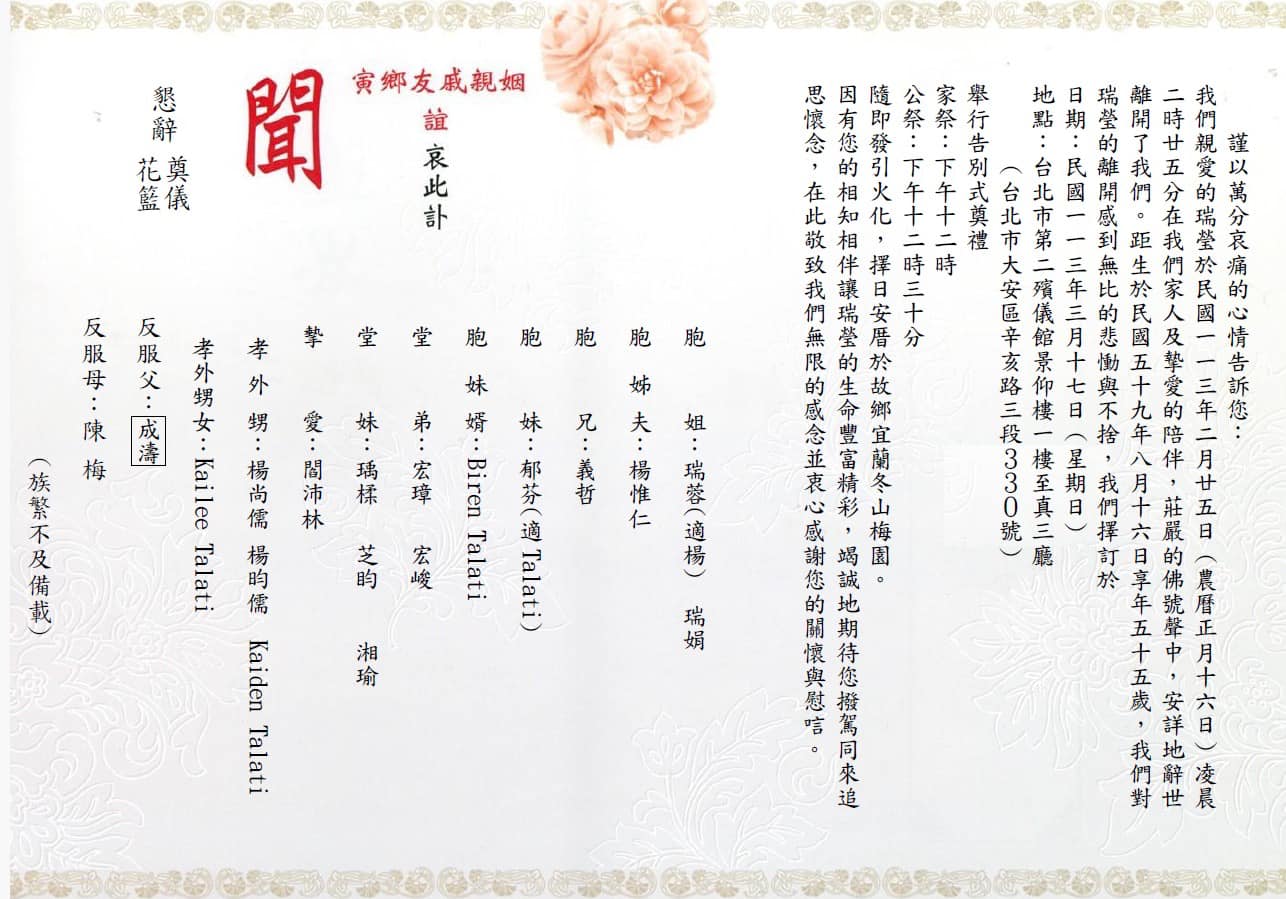 謹以萬分哀痛的心情告訴您：
我們親愛的瑞瑩於民國一一三年二月廿五日（農曆正月十六日）凌晨
二時廿五分在我們家人及摯愛的陪伴，莊嚴的佛號聲中，安詳地辭世
離開了我們。距生於民國五十九年八月十六日享年五十五歲，我們對
瑞瑩的離開感到無比的悲慟與不捨，我們擇訂於
日期：民國一一三年三月十七日（星期日）
地點：台北市第二殯儀館景仰樓一樓至真三廳
（台北市大安區辛亥路三段330號）
舉行告別式奠禮
家祭：下午十二時
公祭：下午十二時三十分
隨即發引火化，擇日安厝於故鄉宜蘭冬山梅園。
因有您的相知相伴讓瑞瑩的生命豐富精彩，竭誠地期待您撥駕同來追
思懷念，在此敬致我們無限的感念並衷心感謝您的關懷與慰唁。
胞姐：瑞蓉（適楊） 瑞娟
胞姊夫：楊惟仁
胞兄：義哲
胞妹：郁芬(適Talati)
胞妹婿：Biren Talati
堂弟：宏璋 宏峻
堂妹：瑀楺 芝昀 湘瑜
摯愛：閻沛林
孝外甥：楊尚儒 楊昀儒 Kaiden Talati
孝外甥女：Kailee Talati
反服父：成濤
反服母：陳梅
（族繁不及備載）
寅鄉友戚親姻
誼哀此訃
聞
懇辭
奠儀
花籃